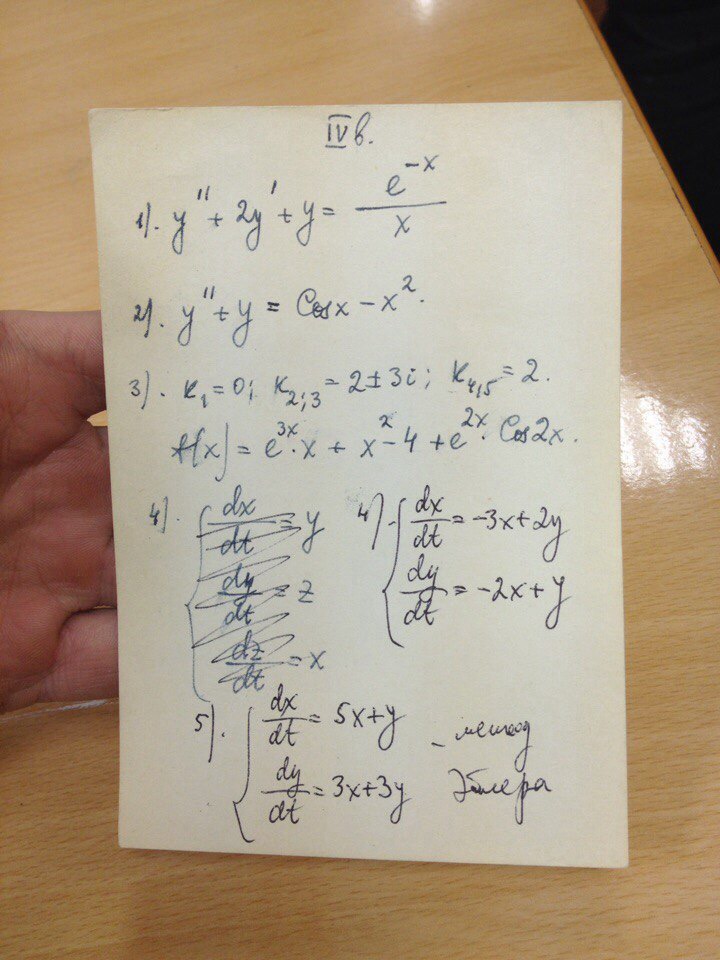 IV в.
1). y'' + 2y' + y = e^{-x}/x
2). y'' + y = Cosx - x^2.
3). к_1 = 0; к_{2;3} = 2 ± 3i; к_{4,5} = 2.
f(x) = e^{3x}·x + x^2 - 4 + e^{2x}·Cos2x.
4). { dx/dt = y
dy/dt = z
dz/dt = x
4). { dx/dt = -3x+2y
dy/dt = -2x+y
5). { dx/dt = 5x+y
dy/dt = 3x+3y
- метод
Эйлера